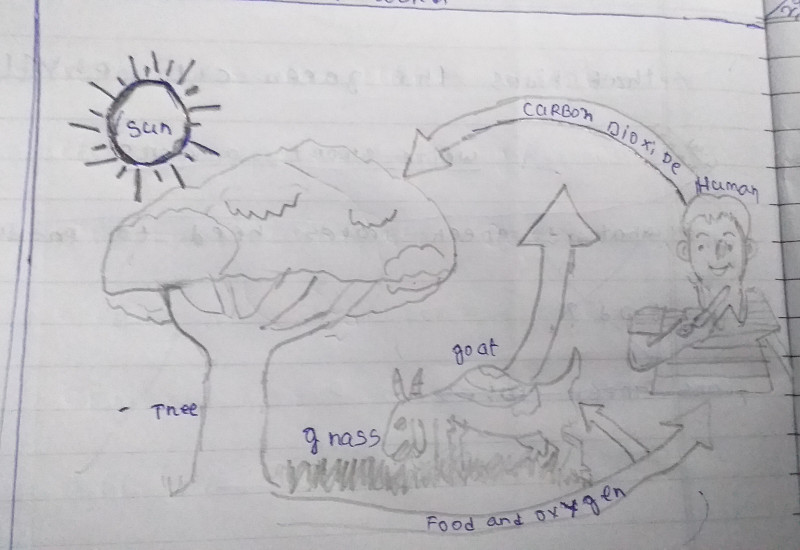 sun
CARBON DIOXIDE
Human
goat
Tree
grass
Food and oxygen